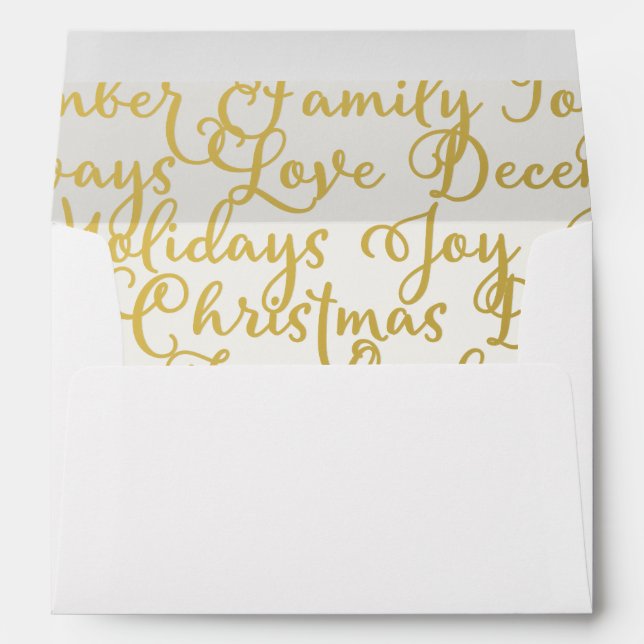 mber Family Jo
ways Love Decem
Holidays Joy
Christmas